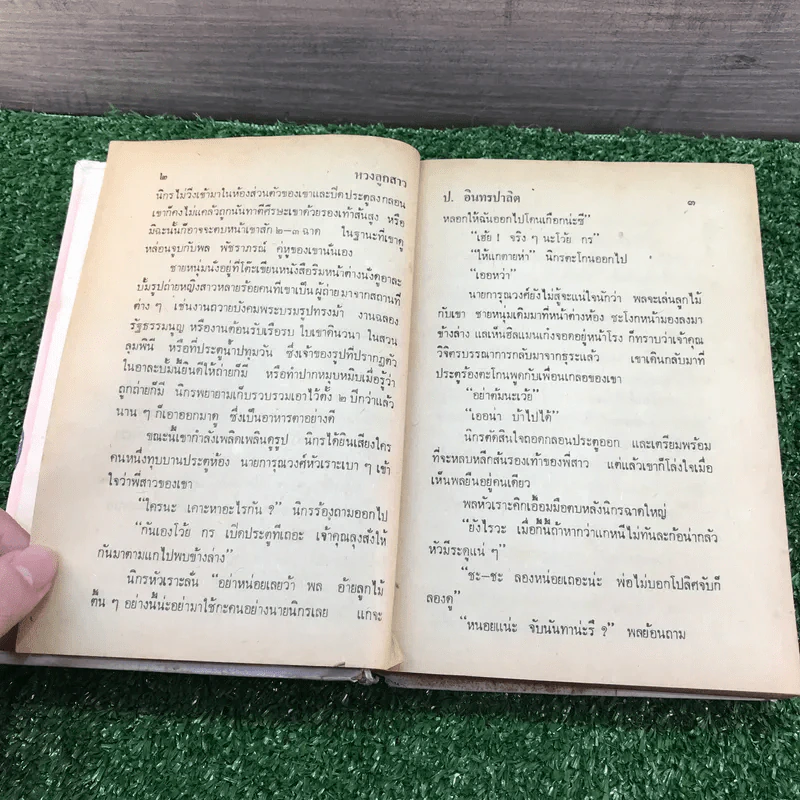 ๒ หวงลูกสาว
นิกรไม่วิ่งเข้ามาในห้องส่วนตัวของเขาและปิดประตูลงกลอน
เขาก็คงไม่แคล้วถูกนันทาตีศีรษะเขาด้วยรองเท้าส้นสูง หรือ
มิฉะนั้นก็อาจจะตบหน้าเขาสัก ๒-๓ ฉาด ในฐานะที่เขาดู
หล่อนจูบกับพล พัชราภรณ์ คู่หูของเขานั่นเอง
ชายหนุ่มนั่งอยู่ที่โต๊ะเขียนหนังสือริมหน้าต่างนั่งดูอาละ
บั้มรูปถ่ายหญิงสาวหลายร้อยคนที่เขาเป็นผู้ถ่ายมาจากสถานที่
ต่าง ๆ เช่นงานถวายบังคมพระบรมรูปทรงม้า งานฉลอง
รัฐธรรมนูญ หรืองานต้อนรับเรือรบ ไบเขาดินวนา ในสวน
ลุมพินี หรือที่ประตูน้ำปทุมวัน ซึ่งเจ้าของรูปที่ปรากฏตัว
ในอาละบั้มนี้ยินดีให้ถ่ายก็มี หรือทำปากหมุบหมิบเมื่อรู้ว่า
ถูกถ่ายก็มี นิกรพยายามเก็บรวบรวมเอาไว้ตั้ง ๒ ปีกว่าแล้ว
นาน ๆ ก็เอาออกมาดู ซึ่งเป็นอาหารตาอย่างดี
ขณะนี้เขากำลังเพลิดเพลินดูรูป นิกรได้ยินเสียงใคร
คนหนึ่งทุบบานประตูห้อง นายการุณวงศ์หัวเราะเบา ๆ เข้า
ใจว่าพี่สาวของเขา
"ใครนะ เคาะหาอะไรกัน ?" นิกรร้องถามออกไป
"กันเองโว้ย กร เปิดประตูทีเถอะ เจ้าคุณลุงสั่งให้
กันมาตามแกไปพบข้างล่าง"
นิกรหัวเราะลั่น "อย่าหน่อยเลยว้า พล อ้ายลูกไม้
ตื้น ๆ อย่างนี้น่ะอย่ามาใช้กะคนอย่างนายนิกรเลย แกจะ
ป. อินทรปาลิต ๓
หลอกให้ฉันออกไปโดนเกือกน่ะซี"
"เฮ้ย ! จริง ๆ นะโว้ย กร"
"ให้แกตายห่า" นิกรตะโกนออกไป
"เออหว่า"
นายการุณวงศ์ยังไม่สู้จะแน่ใจนักว่า พลจะเล่นลูกไม้
กับเขา ชายหนุ่มเดินมาที่หน้าต่างห้อง ชะโงกหน้ามองลงมา
ข้างล่าง แลเห็นฮิลแมนเก๋งจอดอยู่หน้าโรง ก็ทราบว่าเจ้าคุณ
วิจิตรบรรณาการกลับมาจากธุระแล้ว เขาเดินกลับมาที่
ประตูร้องตะโกนพูดกับเพื่อนเกลอของเขา
"อย่าต้มนะเว้ย"
"เออน่า บ้าไปได้"
นิกรตัดสินใจถอดกลอนประตูออก และเตรียมพร้อม
ที่จะหลบหลีกส้นรองเท้าของพี่สาว แต่แล้วเขาก็โล่งใจเมื่อ
เห็นพลยืนอยู่คนเดียว
พลหัวเราะคิกเอื้อมมือตบหลังนิกรฉาดใหญ่
"ยังไรวะ เมื่อกี้นี้ถ้าหากว่าแกหนีไม่ทันละก้อน่ากลัว
หัวมีระตูแน่ ๆ"
"ชะ-ชะ ลองหน่อยเถอะน่ะ พ่อไม่บอกโปลิศจับก็
ลองดู"
"หนอยแน่ะ จับนันทาน่ะรึ ?" พลย้อนถาม